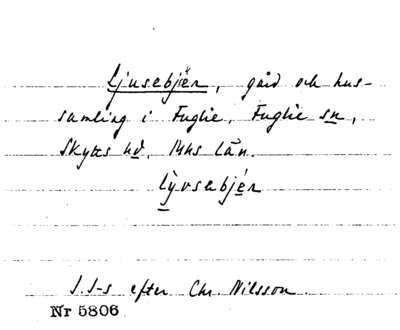 Ljusebjär, gård och hus-
samling i Fuglie, Fuglie sn,
Skytts hd, Mhs län.
lyvsebjér
J.S-s efter Chr. Nilsson.
Nr 5806